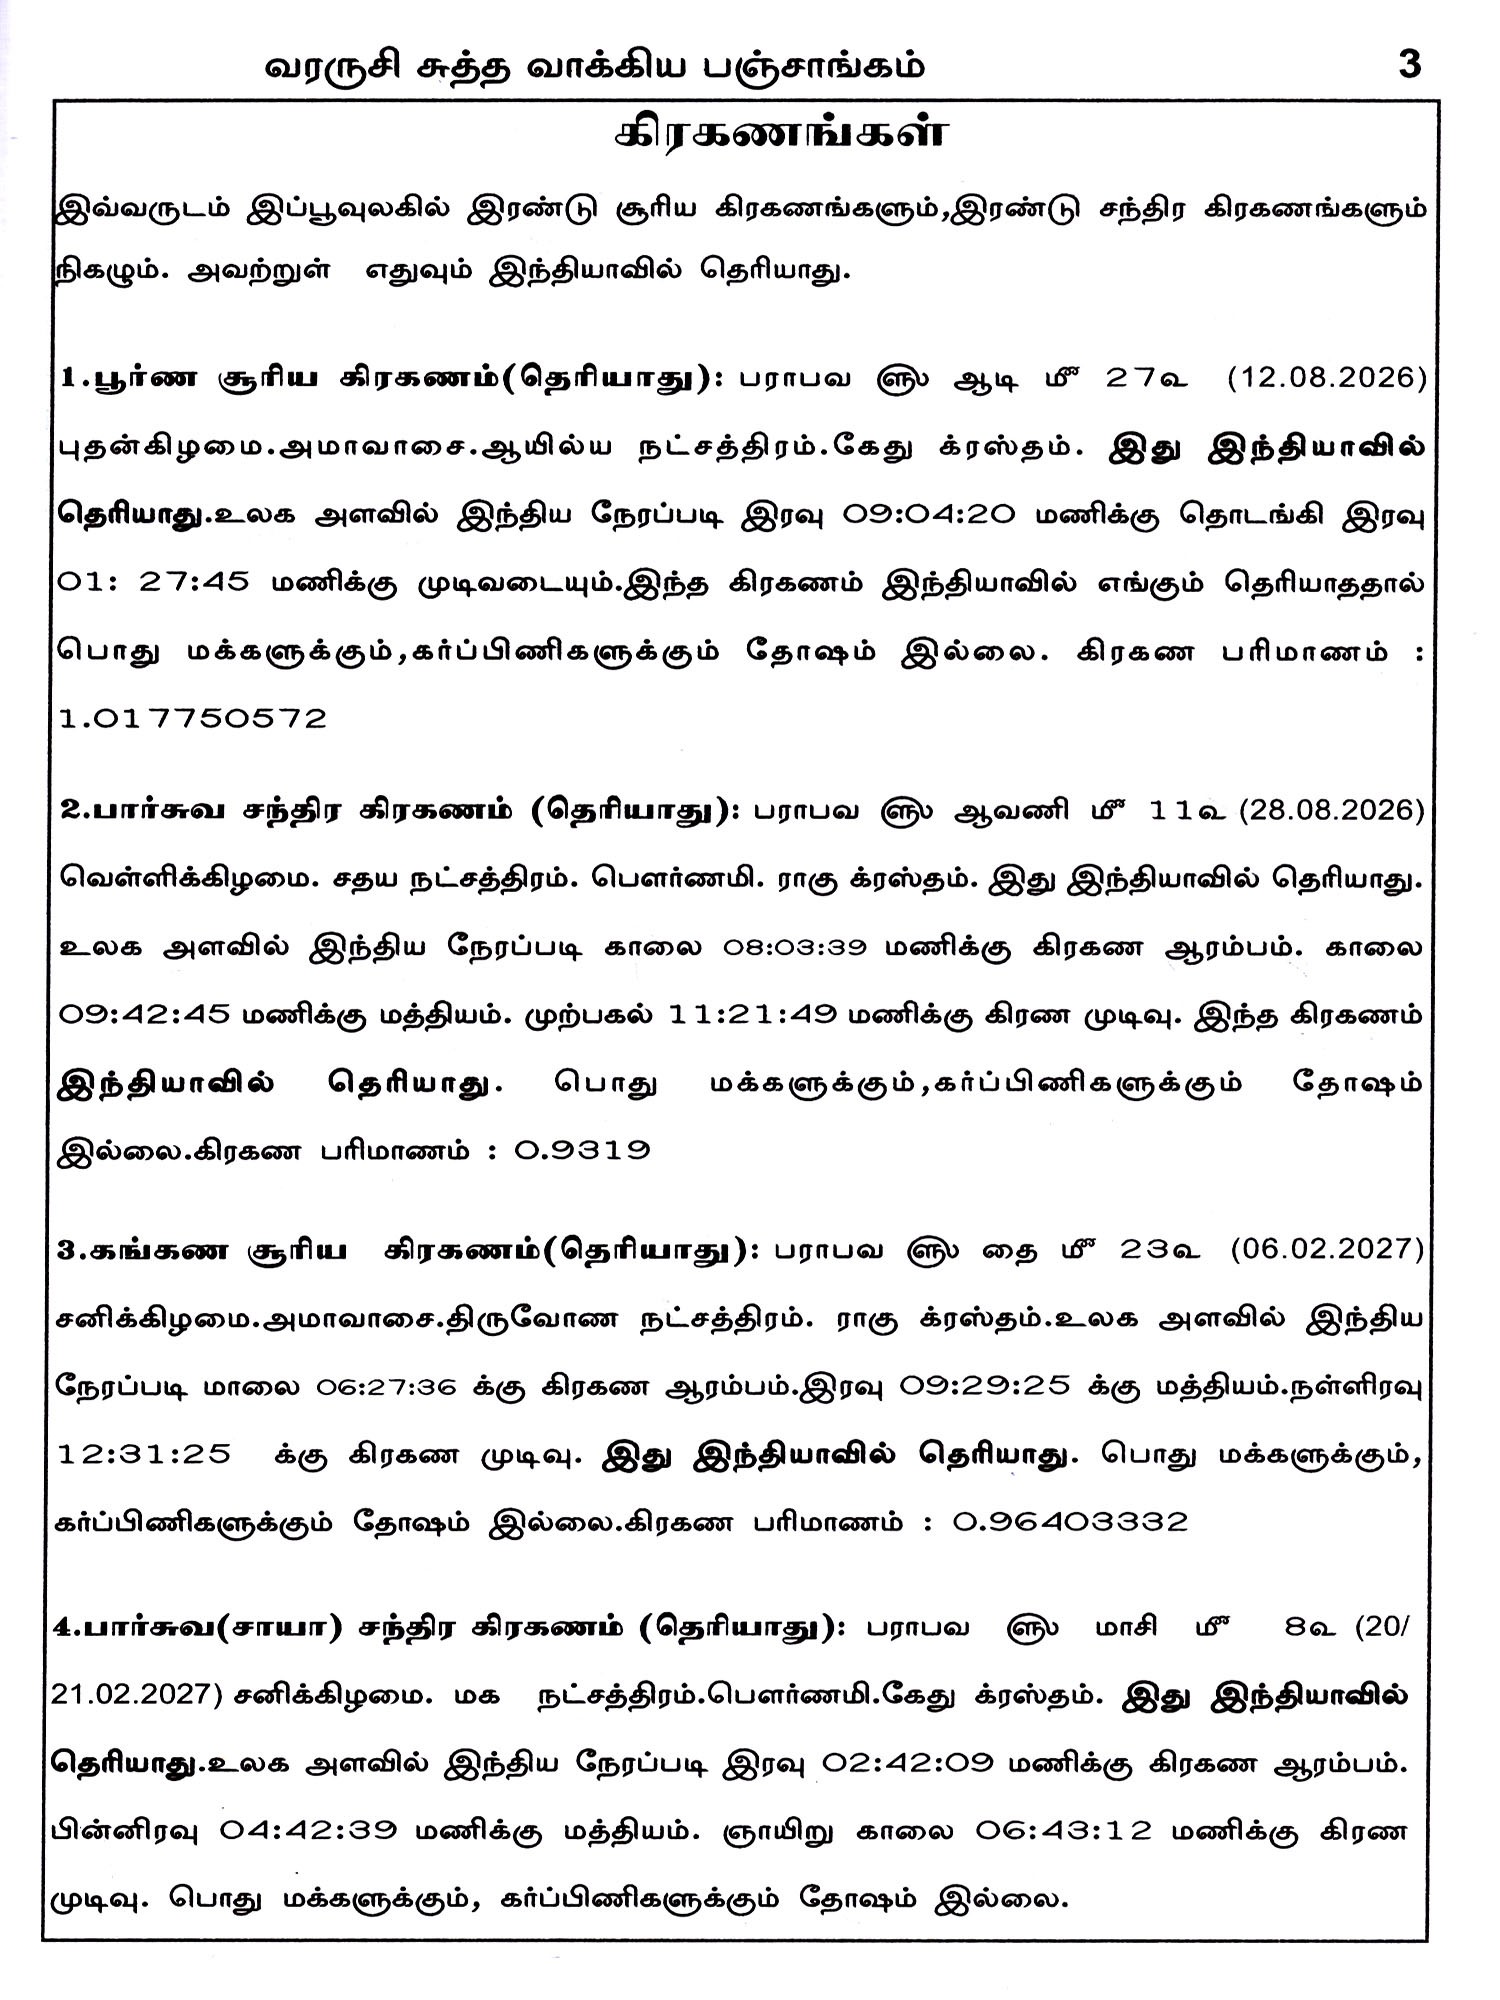 வரருசி சுத்த வாக்கிய பஞ்சாங்கம் 3
கிரகணங்கள்
இவ்வருடம் இப்பூவுலகில் இரண்டு சூரிய கிரகணங்களும்,இரண்டு சந்திர கிரகணங்களும்
நிகழும். அவற்றுள் எதுவும் இந்தியாவில் தெரியாது.
1.பூர்ண சூரிய கிரகணம்(தெரியாது): பராபவ ௵ ஆடி ௴ 27௳ (12.08.2026)
புதன்கிழமை.அமாவாசை.ஆயில்ய நட்சத்திரம்.கேது க்ரஸ்தம். இது இந்தியாவில்
தெரியாது.உலக அளவில் இந்திய நேரப்படி இரவு 09:04:20 மணிக்கு தொடங்கி இரவு
01: 27:45 மணிக்கு முடிவடையும்.இந்த கிரகணம் இந்தியாவில் எங்கும் தெரியாததால்
பொது மக்களுக்கும்,கர்ப்பிணிகளுக்கும் தோஷம் இல்லை. கிரகண பரிமாணம் :
1.017750572
2.பார்சுவ சந்திர கிரகணம் (தெரியாது): பராபவ ௵ ஆவணி ௴ 11௳ (28.08.2026)
வெள்ளிக்கிழமை. சதய நட்சத்திரம். பௌர்ணமி. ராகு க்ரஸ்தம். இது இந்தியாவில் தெரியாது.
உலக அளவில் இந்திய நேரப்படி காலை 08:03:39 மணிக்கு கிரகண ஆரம்பம். காலை
09:42:45 மணிக்கு மத்தியம். முற்பகல் 11:21:49 மணிக்கு கிரண முடிவு. இந்த கிரகணம்
இந்தியாவில் தெரியாது. பொது மக்களுக்கும்,கர்ப்பிணிகளுக்கும் தோஷம்
இல்லை.கிரகண பரிமாணம் : 0.9319
3.கங்கண சூரிய கிரகணம்(தெரியாது): பராபவ ௵ தை ௴ 23௳ (06.02.2027)
சனிக்கிழமை.அமாவாசை.திருவோண நட்சத்திரம். ராகு க்ரஸ்தம்.உலக அளவில் இந்திய
நேரப்படி மாலை 06:27:36 க்கு கிரகண ஆரம்பம்.இரவு 09:29:25 க்கு மத்தியம்.நள்ளிரவு
12:31:25 க்கு கிரகண முடிவு. இது இந்தியாவில் தெரியாது. பொது மக்களுக்கும்,
கர்ப்பிணிகளுக்கும் தோஷம் இல்லை.கிரகண பரிமாணம் : 0.96403332
4.பார்சுவ(சாயா) சந்திர கிரகணம் (தெரியாது): பராபவ ௵ மாசி ௴ 8௳ (20/
21.02.2027) சனிக்கிழமை. மக நட்சத்திரம்.பௌர்ணமி.கேது க்ரஸ்தம். இது இந்தியாவில்
தெரியாது.உலக அளவில் இந்திய நேரப்படி இரவு 02:42:09 மணிக்கு கிரகண ஆரம்பம்.
பின்னிரவு 04:42:39 மணிக்கு மத்தியம். ஞாயிறு காலை 06:43:12 மணிக்கு கிரண
முடிவு. பொது மக்களுக்கும், கர்ப்பிணிகளுக்கும் தோஷம் இல்லை.